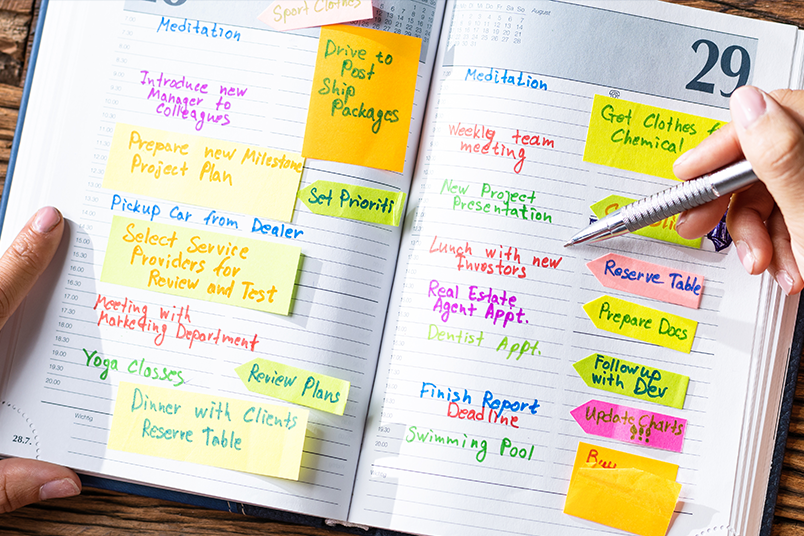 Sport Clothes
Meditation
Drive to
Post
Ship
Packages
Introduce new
Manager to
Colleagues
Prepare new Milestone
Project Plan
Set Prioriti
Pickup Car from Dealer
Select Service
Providers for
Review and Test
Meeting with
Marketing Department
Yoga Classes
Review Plans
Dinner with Clients
Reserve Table
Wichtig
28.7.
August
29
Meditation
Get Clothes f
Chemical
Weekly team
meeting
New Project
Presentation
Lunch with new
Investors
Reserve Table
Real Estate
Agent Appt.
Prepare Docs
Dentist Appt.
Followup
with Dev
Finish Report
Deadline
Update Charts
!!!
Swimming Pool